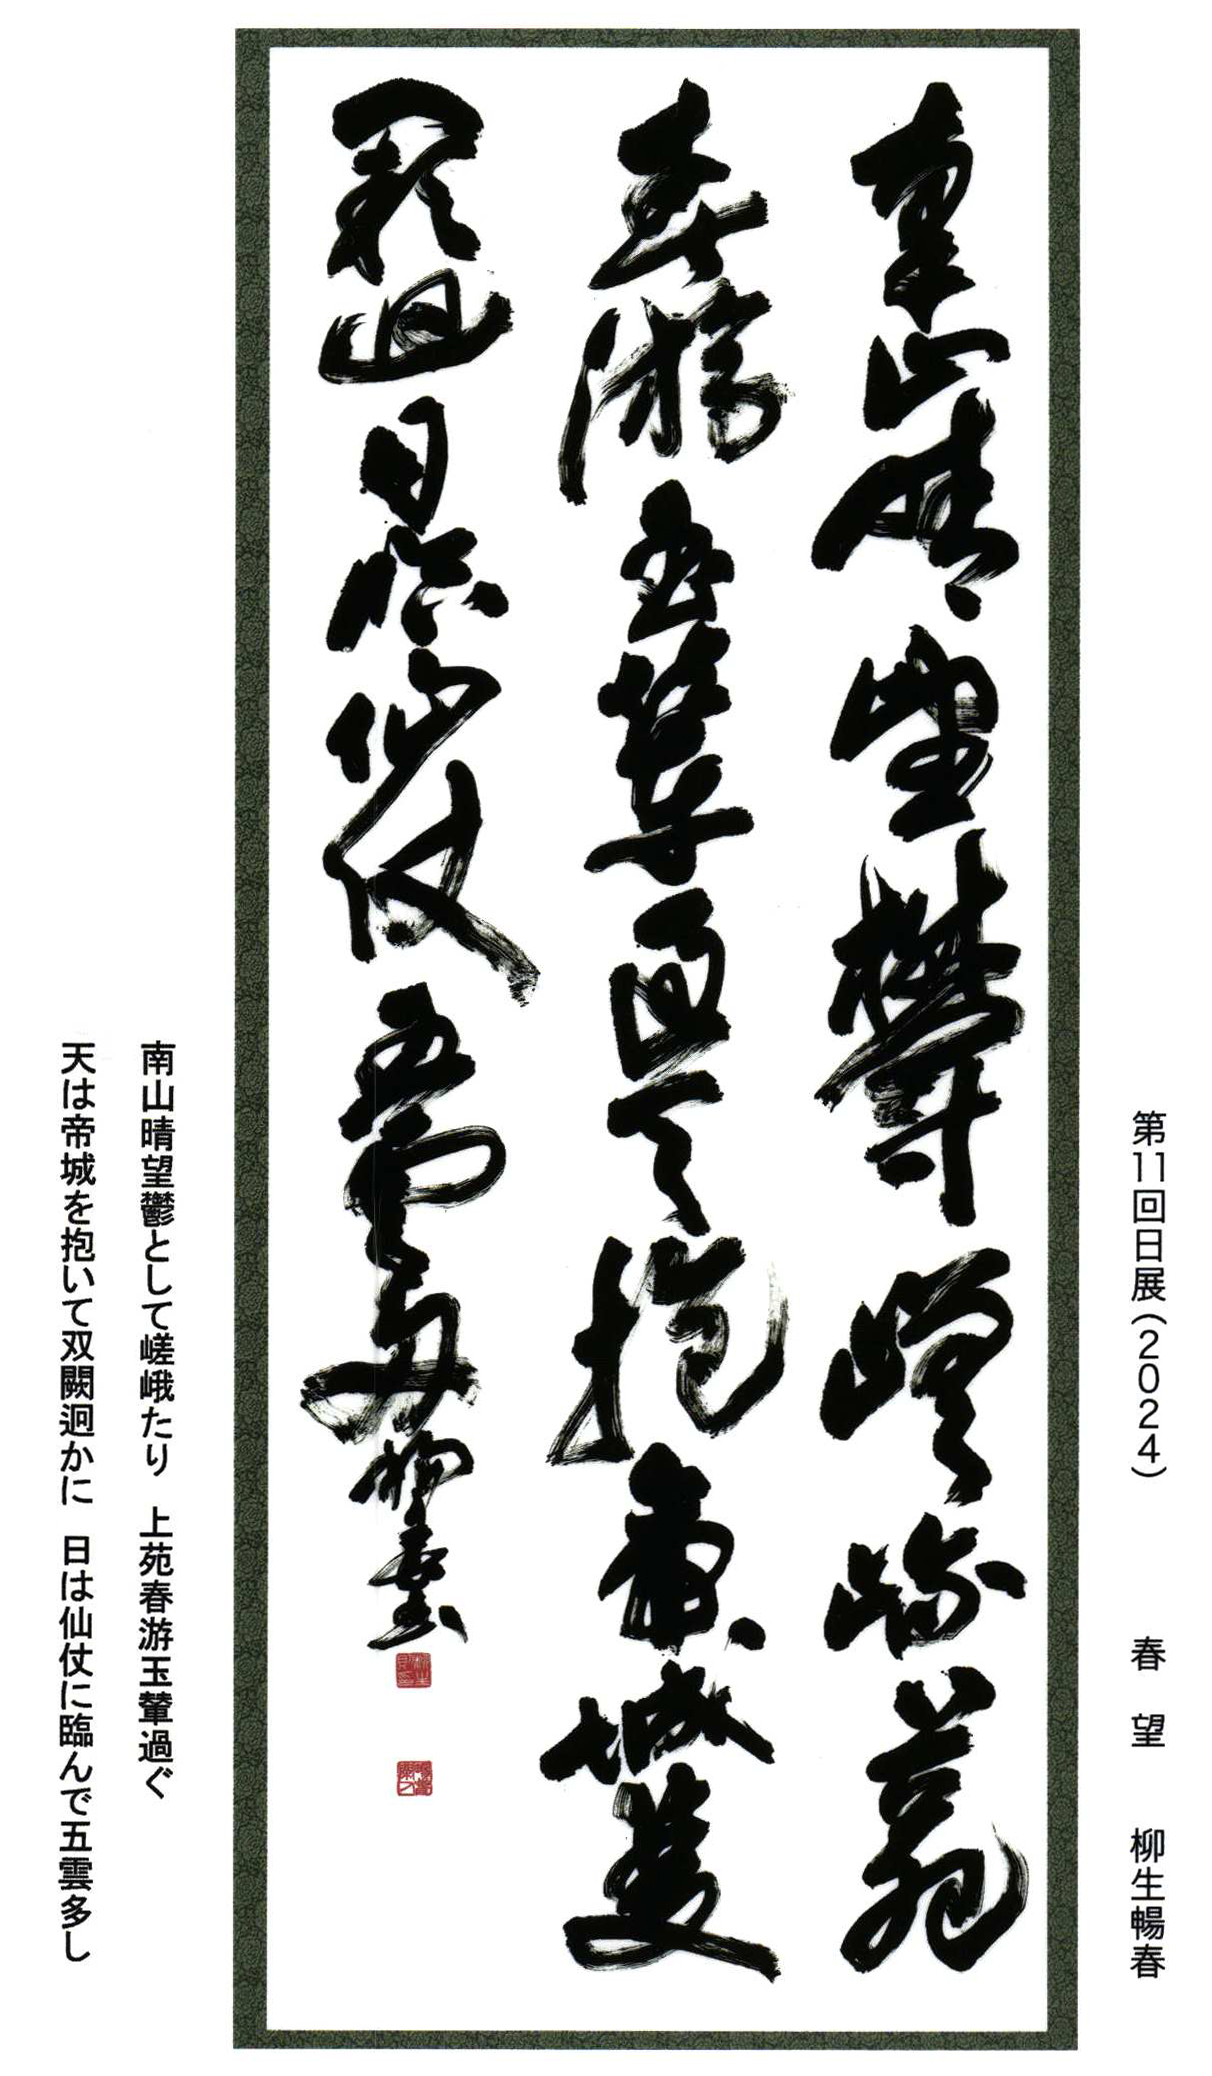 第11回日展(2024)　春　望　柳生暢春
南山晴望鬱嵯峨上苑
春游玉輦過天抱帝城雙
闕迥日臨仙仗五雲多 暢春
南山晴望鬱として嵯峨たり　上苑春游玉輦過ぐ
天は帝城を抱いて双闕迥かに　日は仙仗に臨んで五雲多し